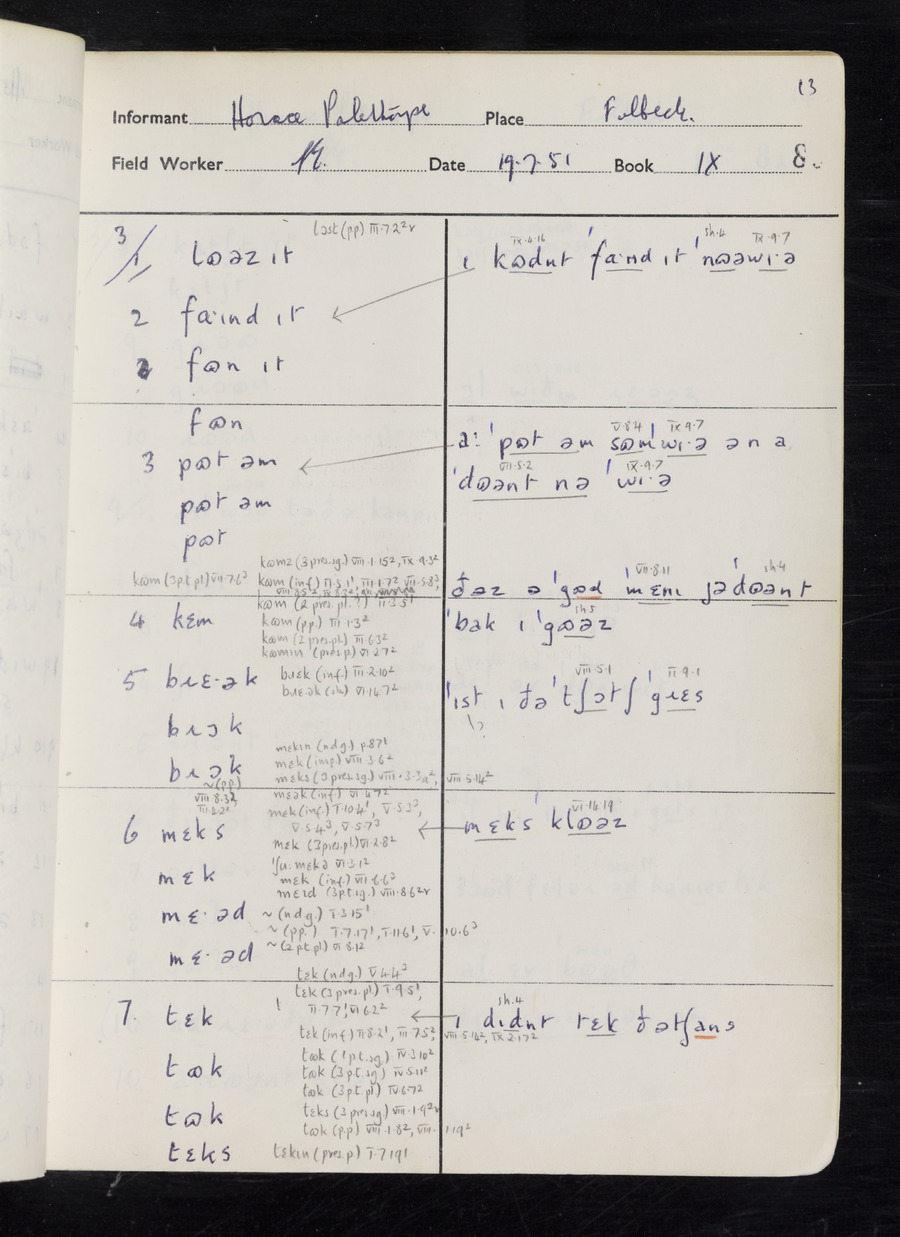 13
Informant Horace Palethorpe Place Elbeck.
Field Worker Date 19.7.51 Book IX 8.
3/1 lɷəz ɪt lɔst (pp) III.7.2²v
ɪ kɷdnt 'fa:ɪnd ɪt 'nɷəwɪ·ə
IX.4.16 sh.4 IX.9.7
2 fa:ɪnd ɪt
2 fɷn ɪt
fɷn
3 pɷt əm
a: 'pɷt əm sɷm'wɪ·ə ən a
V.8.4 IX.9.7
'dɷənt nə 'wɪ·ə
VII.5.2 IX.9.7
pɷt əm
pɷt
kɷmz (3 pres.sg.) VIII.1.15², IX.9.3²
kɷm (3 p.t. pl) VII.7.6³ kɷm (inf) II.5.1', III.1.7² VII.5.8³,
kɷm (2 pres. pl.?) II.3.5¹
ðəz ə 'gɷd 'mɛnɪ jə'dɷənt
VII.8.11 sh.4
4 kɛm kɷm (pp.) III.1.3²
kɷm (2 pres.pl.) III.6.3²
kɷmɪn (pres.p) VI.2.7²
'bak ɪ 'gɷəz
sh.5
5 bɹɛ·ək bɹɛk (inf.) III.2.10²
bɹɛ·ək VI.14.7²
'ɪst ɪ ðə 'tʃɔtʃ 'gɹɛs
VIII.5.1 II.9.1
bɹɔk
bɹɔk
~ (pp) VIII.8.3²
mɛkɪn (ndg.) p.87¹
mɛk (imp.) VIII.3.6²
mɛks (3 pres.sg.) VIII.3.3a², VIII.5.14²
mɛək (inf) VI.4.7²
mɛk (inf.) I.10.4¹, V.5.3³,
V.5.4³, V.5.7³
6 mɛks mɛk (3 pres.pl.) VI.2.8²
mɛks 'klɷəz
VI.14.19
'ʃu:mɛkə VI.3.1²
mɛk mɛk (inf.) VII.6.6³
mɛɪd (3 p.t.sg.) VIII.8.6²v
mɛ·əd ~ (ndg.) I.3.15¹
~ (pp.) I.7.17¹, I.11.6¹, V.10.6³
mɛ·əd ~ (2 p.t. pl) VI.8.12
tɛk (ndg.) V.4.4³
tɛk (3 pres.pl) I.9.5¹,
II.7.7¹, VI.6.2²
7. tɛk tɛk (inf) II.8.2¹, III.7.5², VIII.5.14², IX.2.17²
ɪ dɪdnt tɛk ðə tʃans
sh.4
tɷk tɷk (1 p.t.sg.) IV.3.10²
tɷk (3 p.t.sg) IV.5.11²
tɷk (3 p.t. pl) IV.6.7²
tɷk tɛks (3 pres.sg.) VIII.1.9²v
tɷk (p.p) VIII.1.8², VIII.1.19²
tɛks tɛkɪn (pres.p) I.7.19¹